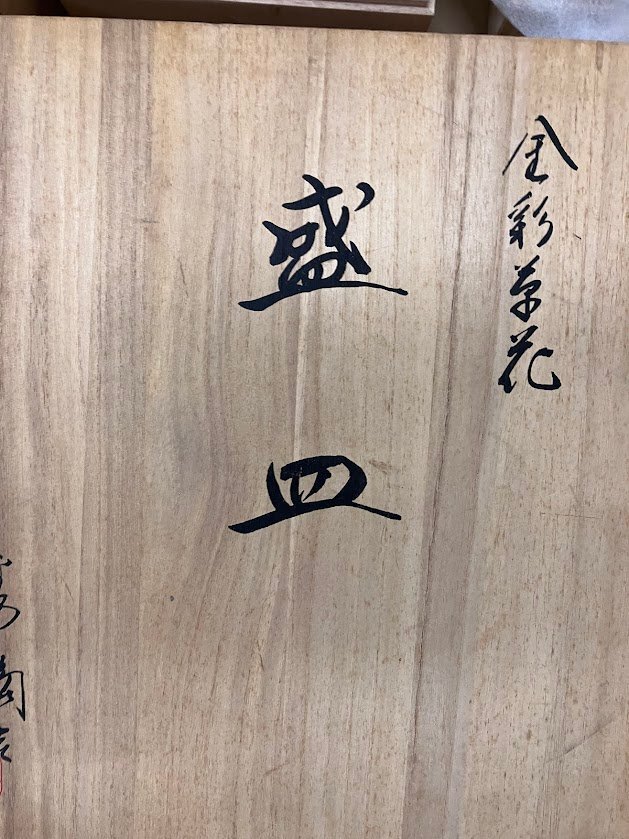 金彩草花
盛皿